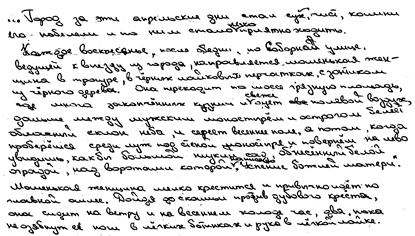 ... Город за эти апрельские дни стал сух, чист, камни
его побелели и по ним стало приятно ходить.
Каждое воскресенье, после обедни, по Соборной улице,
ведущей к выезду из города, направляется маленькая жен-
щина в трауре, в чёрных лайковых перчатках, с зонтиком
из чёрного дерева. Она переходит по шоссе грязную площадь,
где много закопчённых кузниц и свежо дует полевой воздух,
дальше между мужским монастырём и острогом белеет
облачный склон неба и сереет весеннее поле, а потом, когда
проберёшься среди луж под стеной монастыря и повернёшь на лево
увидишь, как бы большой низкий сад, обнесённый белой
оградой, над воротами которой написано Успение божией матери.
Маленькая женщина мелко крестится и привычно идёт по
главной аллее. Дойдя до скамьи против дубового креста,
она сидит на ветру и на весеннем холоде час, два, пока
не озябнут её ноги в лёгких ботинках и рука в лёгкой лайке.